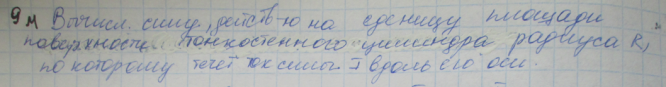 9м Вычисл. силу, действ-ю на единицу площади
поверхности тонкостенного цилиндра радиуса R,
по которому течёт ток силы I вдоль его оси.